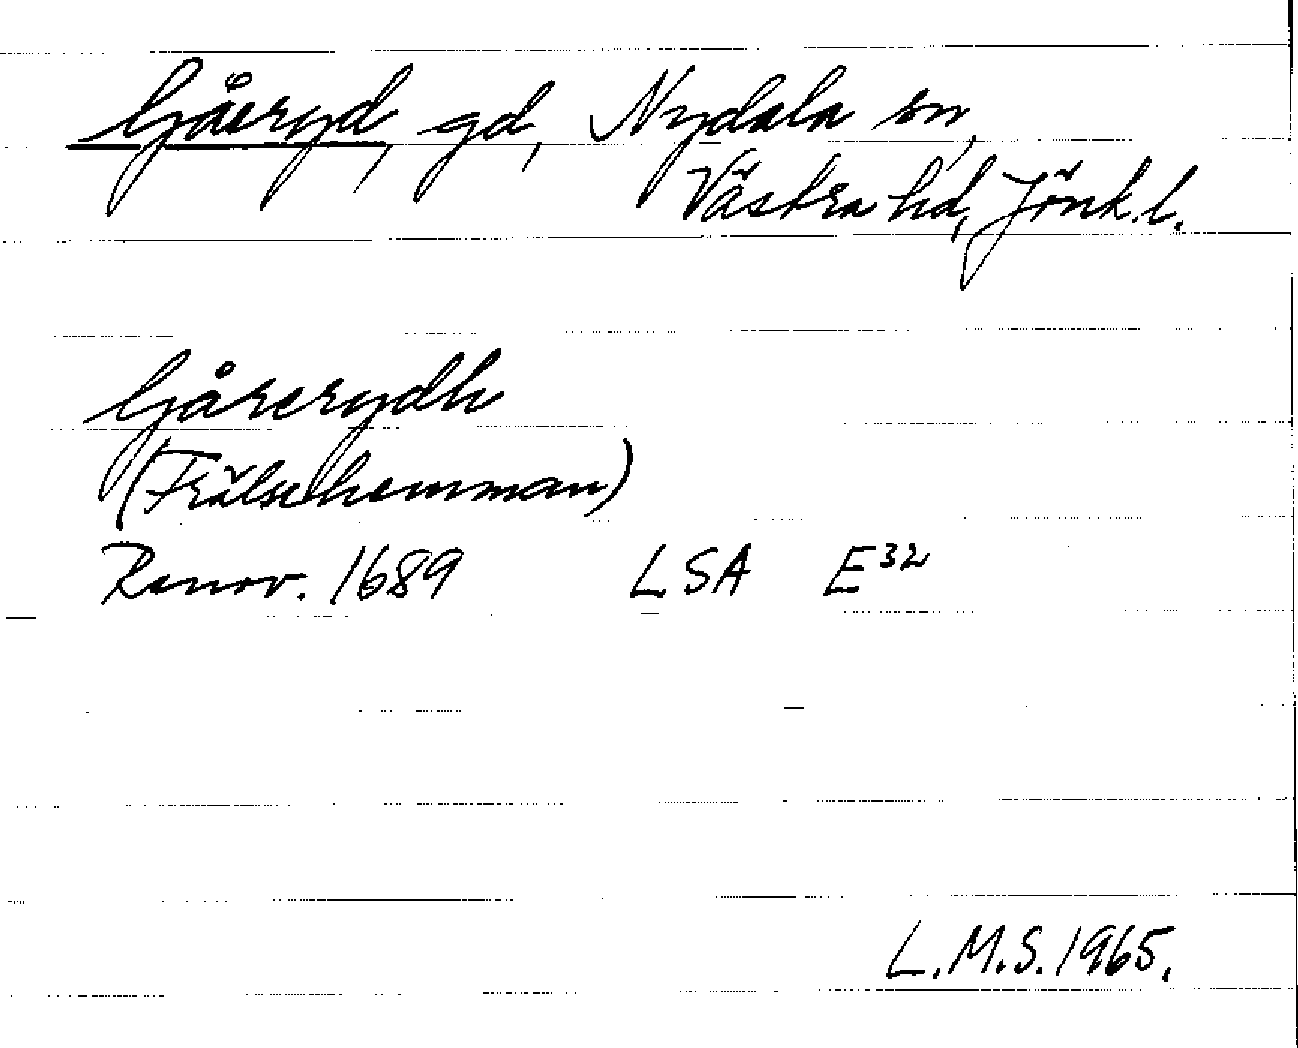 Gåeryd, gd, Nydala sn,
Västra hd, Jönk. l.
Gårerydh
(Frälsehemman)
Renov. 1689 LSA E³²
L.M.S. 1965.